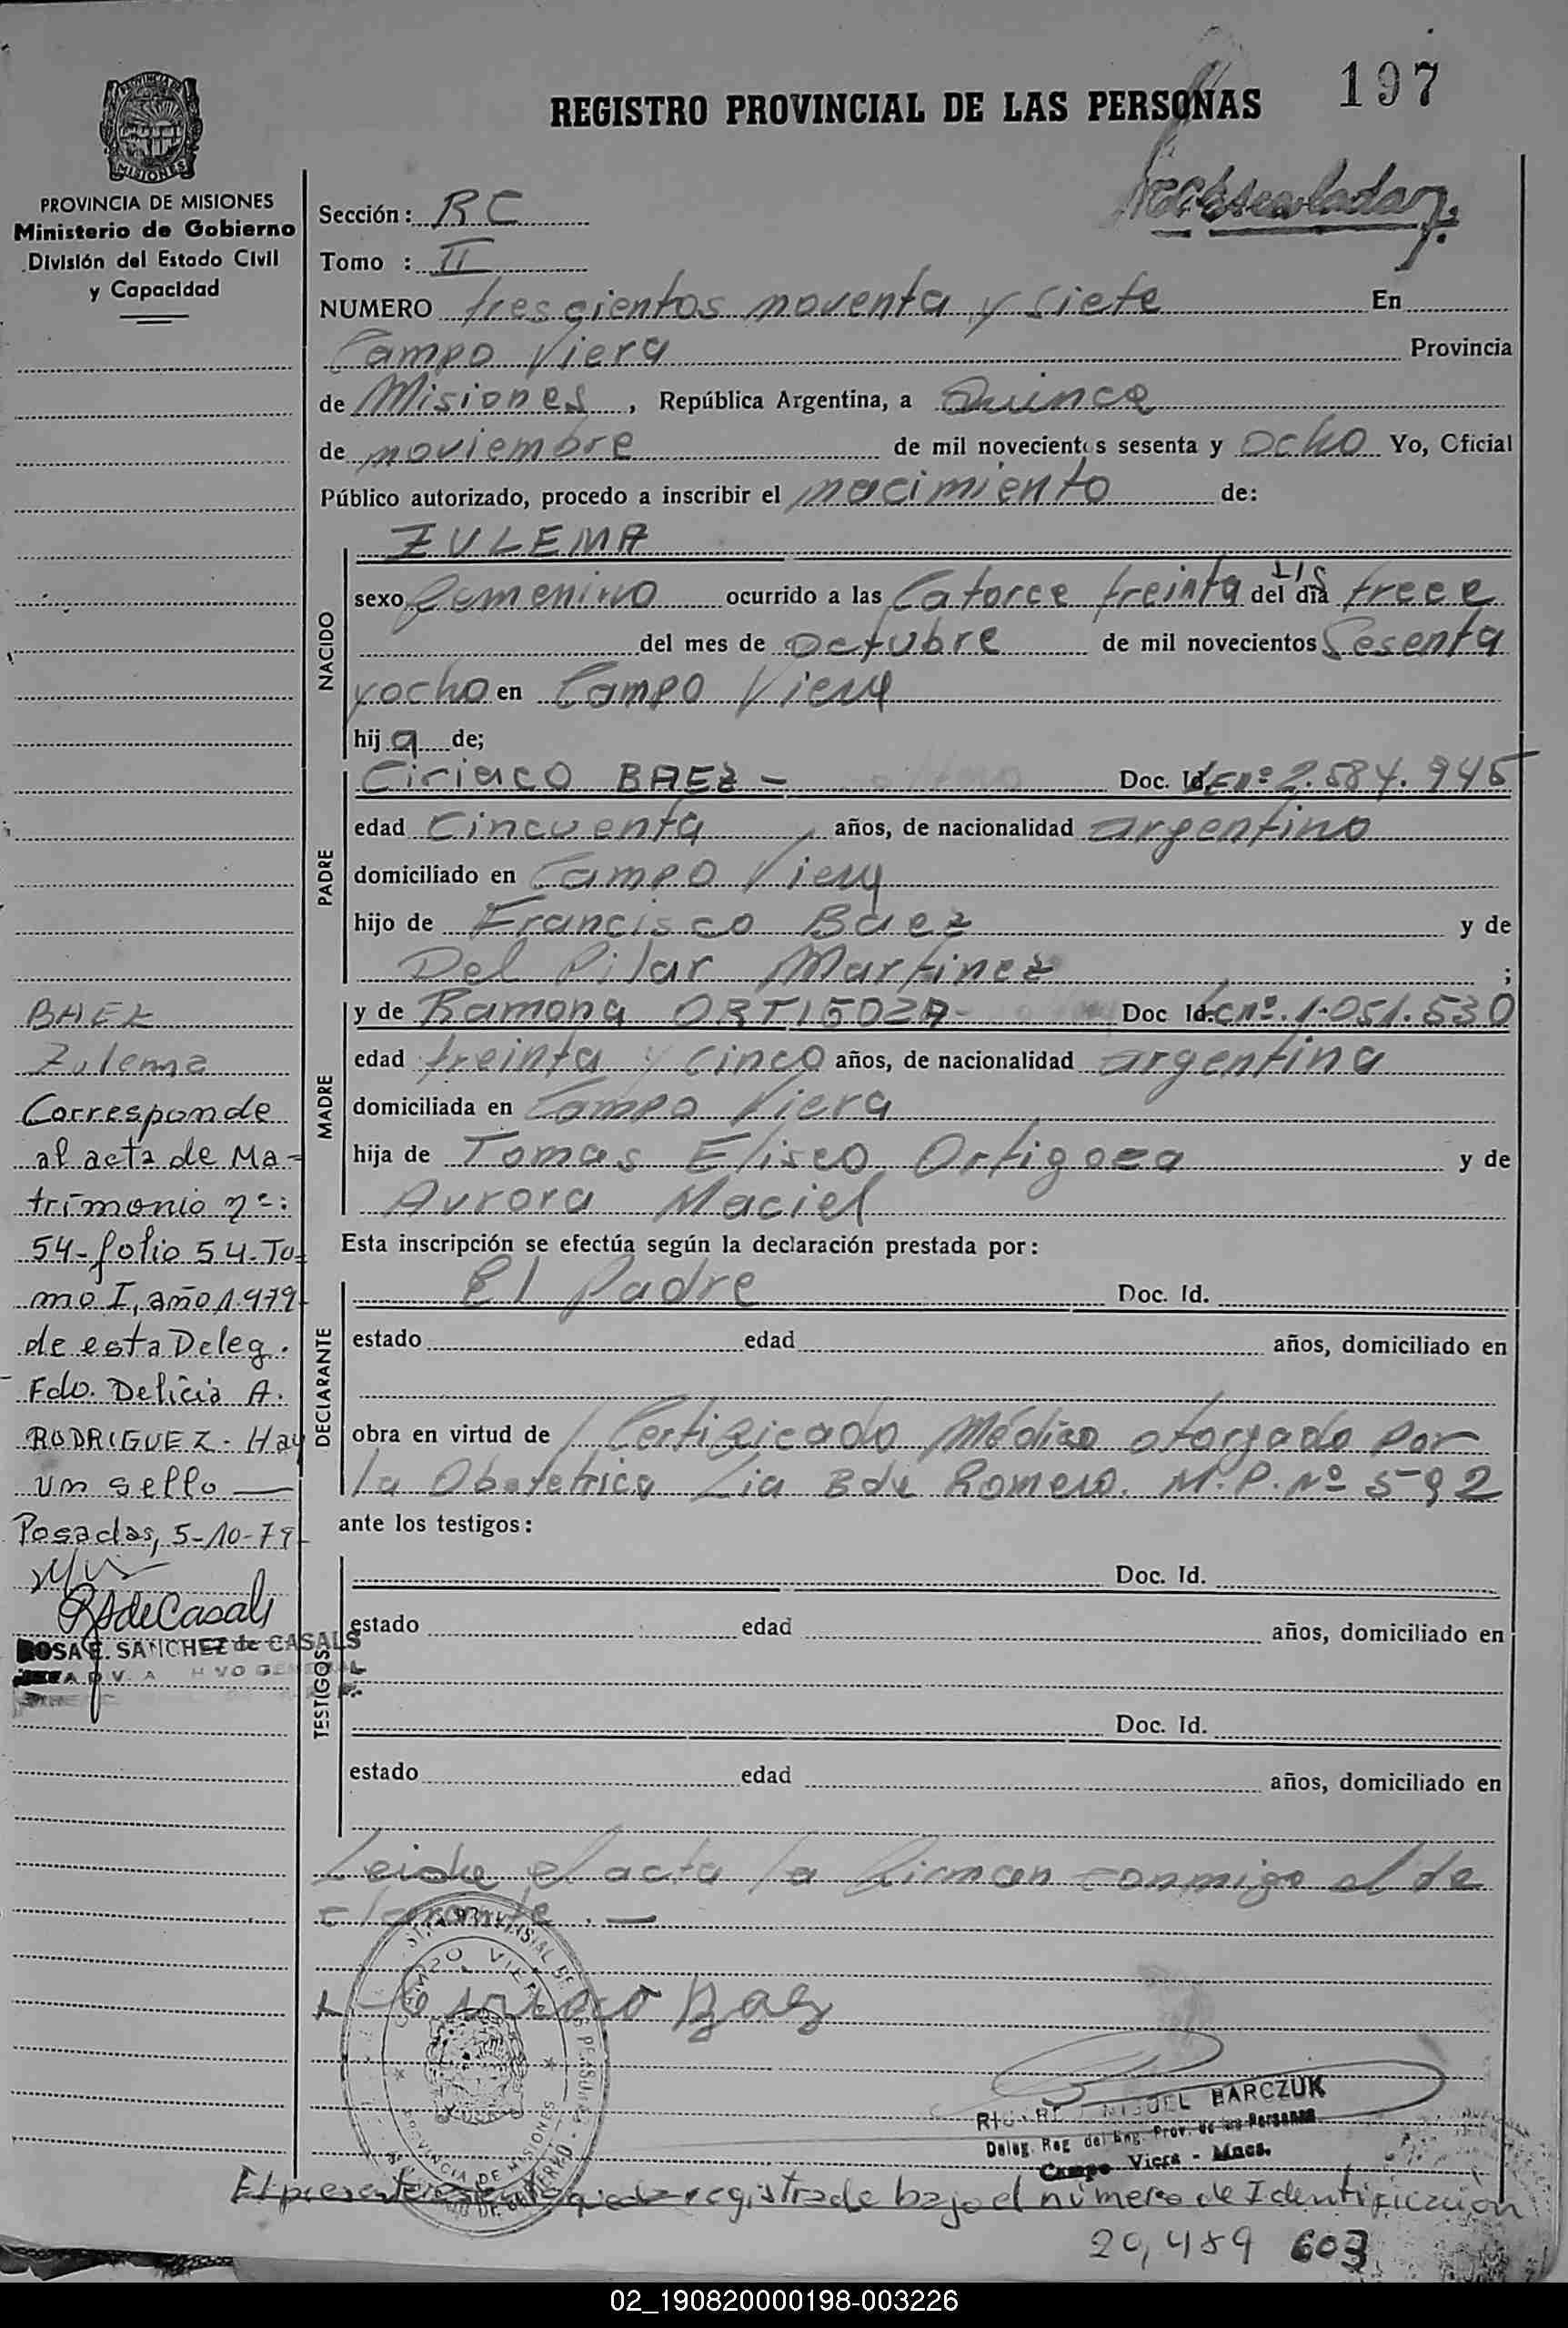 197
REGISTRO PROVINCIAL DE LAS PERSONAS
PROVINCIA DE MISIONES
Ministerio de Gobierno
División del Estado Civil
y Capacidad
Sección: RC
Tomo : II
NUMERO trescientos noventa y siete En
Campo Viera Provincia
de Misiones, República Argentina, a Quince
de noviembre de mil novecientos sesenta y ocho Yo, Oficial
Público autorizado, procedo a inscribir el nacimiento de:
ZULEMA
NACIDO
sexo femenino ocurrido a las Catorce treinta del día trece
del mes de octubre de mil novecientos sesenta
y ocho en Campo Viera
hija de;
PADRE
Ciriaco BAEZ - Doc. Id. LE nº 2.584.945
edad Cincuenta años, de nacionalidad argentino
domiciliado en Campo Viera
hijo de Francisco Baez y de
Del Pilar Martinez ;
MADRE
y de Ramona ORTIGOZA - Doc Id. LC nº. 1.051.530
edad treinta y cinco años, de nacionalidad argentina
domiciliada en Campo Viera
hija de Tomas Eliseo Ortigoza y de
Aurora Maciel
Esta inscripción se efectúa según la declaración prestada por:
DECLARANTE
El Padre Doc. Id.
estado edad años, domiciliado en
obra en virtud de Certificado Médico otorgado por
la Obstetrica Lia B de Romero. M.P. Nº 592
ante los testigos:
TESTIGOS
Doc. Id.
estado edad años, domiciliado en
Doc. Id.
estado edad años, domiciliado en
Leida el acta la firman conmigo el de
clarante . —
Ciriaco Baez
BAEZ
Zulema
Corresponde
al acta de Ma-
trimonio nº:
54-folio 54-To-
mo I, año 1.979-
de esta Deleg.
Fdo. Delicia A.
RODRIGUEZ - Hay
un sello —
Posadas, 5-10-79
RSdeCasals
ROSA E. SANCHEZ de CASALS
CAMPO VIERA
PROVINCIA DE MISIONES
MIGUEL BARCZUK
Deleg. Reg. del Reg. Prov. de las Personas
Campo Viera - Mnes.
El presente queda registrado bajo el número de Identificación
20,489 603
02_190820000198-003226